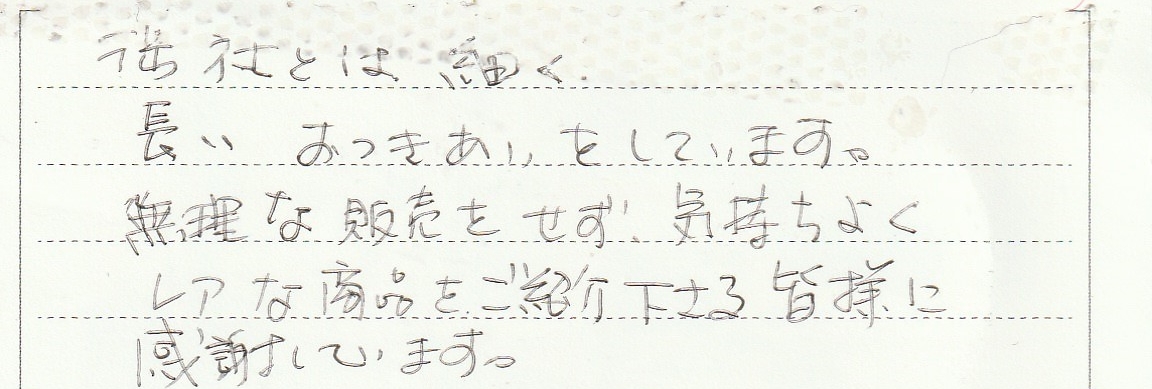 御社とは細く.
長い おつきあいをしています。
無理な販売をせず、気持ちよく
レアな商品をご紹介下さる皆様に
感謝しています。